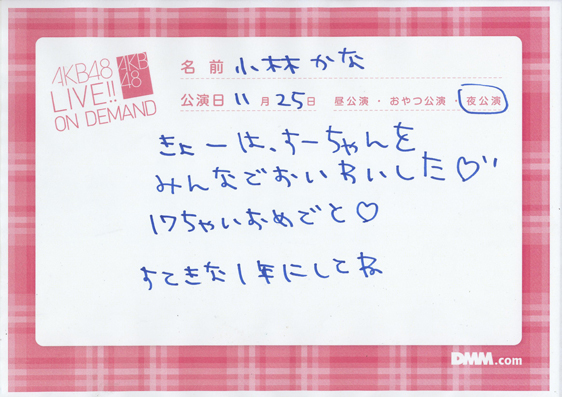 AKB48
LIVE!!
ON DEMAND
AKB
48
名前 小林かな
公演日 11月25日 昼公演・おやつ公演・夜公演
きょーは、すーちゃんを
みんなでおいわいした♡"
17ちゃいおめでと♡
すてきな1年にしてね
DMM.com